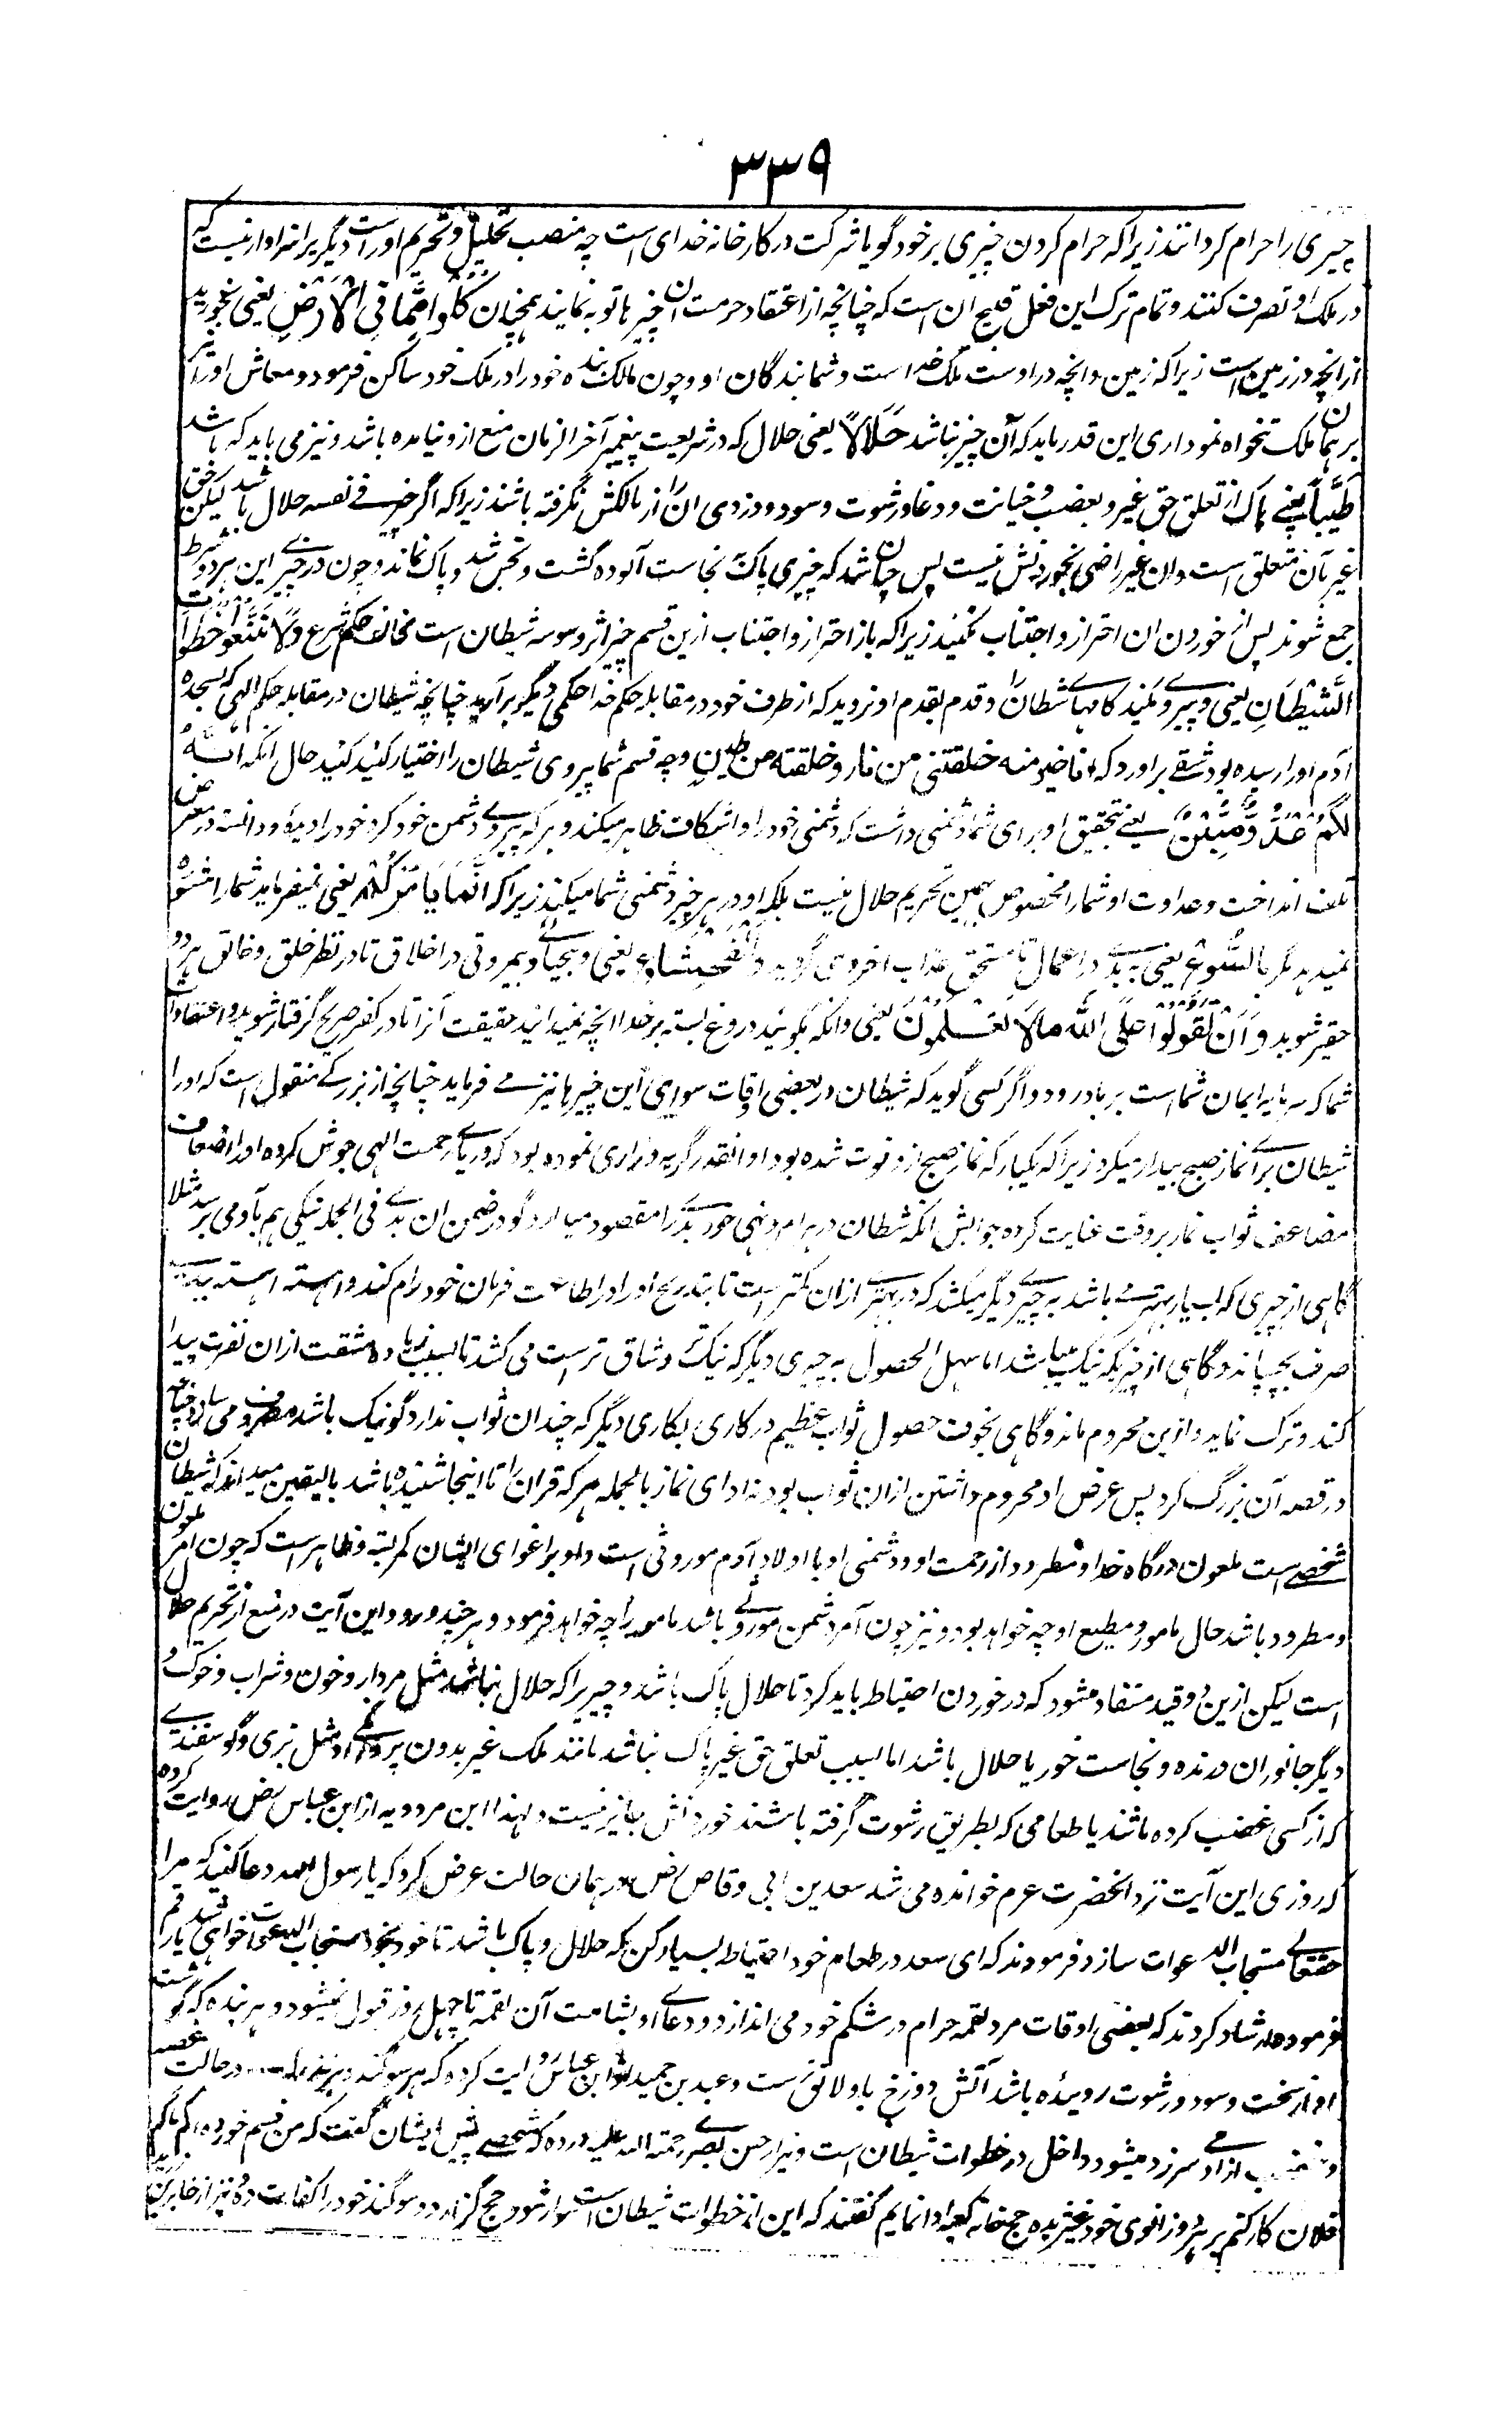 ۳۳۹
چیزی را حرام کردانند زیرا که حرام کردن چیزی بر خود گویا شرکت در کارخانه خدای است چه منصب تحلیل و تحریم اوراست دیگریرا سزاوار نیست که
در ملک او تصرف کنند و تمام ترک این فعل قبیح ان است که چنانچه از اعتقاد حرمت ان چیزها توبه نمایند همچنان كُلُوا مِمَّا فِي الْأَرْضِ یعنی بخورید
ازانچه در زمین است زیرا که زمین وانچه در اوست ملک خدا است و شما بندگان او و چون مالک بنده خود را در ملک خود ساکن فرمود و معاش او را نیز
بر همان ملک تنخواه نمود اری این قدر باید که آن چیز باشد حَلَالًا یعنی حلال که در شریعت پیغمبر آخر الزمان منع از و نیامده باشد و نیز می باید که باشد
طَيِّبًا یعنی پاک از تعلق حق غیر و بغضب و خیانت و دغا و رشوت و سود و دزدی ان را از مالکش نگرفته باشند زیرا که اگر چیزے فی نفسه حلال باشد لیکن حق
غیر بآن متعلق است وان غیر راضی بخوردنش نیست پس چنان شد که چیزی پاک بنجاست آلوده گشت و نجس شد و پاک نماند و چون در چیزے این هر دو شرط
جمع شوند پس از خوردن ان احتراز و اجتناب نکنید زیرا که باز احتراز و اجتناب ازین قسم چیز اثر وسوسه شیطان است مخالف حکم شرع وَلَا تَتَّبِعُوا خُطُوَاتِ
الشَّيْطَانِ یعنی و پیروے نکنید گامہاے شیطان را و قدم بقدم او نروید که از طرف خود در مقابله حکم خدا حکمی دیگر برآرید چنانچه شیطان در مقابله حکم الهی که بسجده
آدم او را رسیده بود شقے براورد که انا خیر منه خلقتنی من نار و خلقته من طین و چه قسم شما پیروی شیطان را اختیار کنید حال انکه إِنَّهُ
لَكُمْ عَدُوٌّ مُبِينٌ یعنے تحقیق او برای شما دشمنی داشت که دشمنی خود را واشکاف ظاهر میکند و هر که پیروے دشمن خود کرد خود را دیده و دانسته در معرض
تلف انداخت و عداوت او شما را مخصوص بهمین تحریم حلال نیست بلکه او در هر چیز دشمنی شما میکند زیرا که إِنَّمَا يَأْمُرُكُمْ یعنی نمیفرماید شما را و مشوره
نمیدهد مگر بِالسُّوءِ یعنی به بدے در اعمال تا مستحق عذاب اخروی گردید وَالْفَحْشَاءِ یعنی و بیحیائے و بیمروتی در اخلاق تا در نظر خلق و خالق هر دو
حقیر شوید وَأَنْ تَقُولُوا عَلَى اللَّهِ مَا لَا تَعْلَمُونَ یعنی وانکه بگوئید دروغ بسته بر خدا انچه نمیدانید حقیقت آنرا تا در کفر صریح گرفتار شوید و اعتقادات
شما که سرمایه ایمان شماست بر باد رود و اگر کسی گوید که شیطان در بعضی اوقات سوای این چیزها نیز مے فرماید چنانچه از بزرگے منقول است که او را
شیطان براے نماز صبح بیدار میکرد زیرا که یکبار که نماز صبح از و فوت شده بود او انقدر گریه و زاری نموده بود که دریاے رحمت الهی جوش کرده او را اضعاف
مضاعف ثواب نماز بروقت عنایت کرده جوابش انکه شیطان در هر امر و نهی خود بدے را مقصود میدارد گو در ضمن ان بدے فی الجمله نیکی هم بآدمی برسد مثلا
گاهی از چیزی که بسیار بهتر مے باشد به چیزے دیگر میکشد که در بهترے ازان کمتر است تا بتدریج او را در اطاعت فرمان خود رام کند و اهسته اهسته به بدے
صرف بچسپاند و گاهی از چیزیکه نیک میباشد اما سهل الحصول به چیزی دیگر که نیک تر و شاق تر است می کشد تا بسبب زیاده مشقت ازان نفرت پیدا
کند و ترک نماید و ازین محروم ماند و گاهی بخوف حصول ثواب عظیم در کاری بکاری دیگر که چندان ثواب ندارد گو نیک باشد مصروف می سازد چنانچه
در قصه آن بزرگ کرد پس غرض او محروم داشتن ازان ثواب بود نه ادای نماز بالجمله هر که قران را تا اینجا شنیده باشد بالیقین میداند که شیطان
شخصے است ملعون درگاه خدا و مطرود از رحمت او و دشمنی او با اولاد آدم موروثی است و او بر اغوای ایشان کمر بسته و ظاهر است که چون آمر ملعون
و مطرود باشد حال مامور و مطیع او چه خواهد بود و نیز چون آمر دشمن موروثے باشد مامور را چه خواهد فرمود و هر چند ورود این آیت در منع از تحریم حلال
است لیکن ازین دو قید مستفاد میشود که در خوردن احتیاط باید کرد تا حلال پاک باشد و چیزیرا که حلال نباشد مثل مردار و خون و شراب و خوک و
دیگر جانوران درنده و نجاست خور یا حلال باشد اما بسبب تعلق حق غیر پاک نباشد مانند ملک غیر بدون پروانگے او مثل بزی و گوسفندے
که از کسی غضب کرده باشند یا طعامی که بطریق رشوت گرفته باشند خوردنش جایز نیست و لهذا ابن مردویه از ابن عباس رض روایت کرده
که روزی این آیت نزد انحضرت صلعم خوانده می شد سعد بن ابی وقاص رض در همان حالت عرض کرد که یا رسول الله دعا کنید که مرا
حقتعالے مستجاب الدعوات سازد فرمودند که ای سعد در طعام خود احتیاط بسیار کن که حلال و پاک باشد تا خود بخود مستجاب الدعوات خواهی شد قسم یاد
فرموده ارشاد کردند که بعضی اوقات مرد لقمه حرام در شکم خود می اندازد و دعاے او بشامت آن لقمه تا چهل روز قبول نمیشود و هر بنده که گوشت
او از سخت و سود و رشوت روییده باشد آتش دوزخ باو لائق ست و عبد بن حمید از ابن عباس روایت کرده که هر سوگند و هر نذر که در حالت غصه
و غضب از آدمے سرزد میشود داخل در خطوات شیطان است و نیز از حسن بصرے رحمة الله علیه آورده که شخصے پیش ایشان گفت که من قسم خورده ام که اگر
فلان کار کنم بر هر دو زانوی خود غیژیده حج خانه کعبه ادا نمایم گفتند که این از خطوات شیطان است سوار شو و حج گزار و سوگند خود را کفارت ده و نیز از جابر بن زید